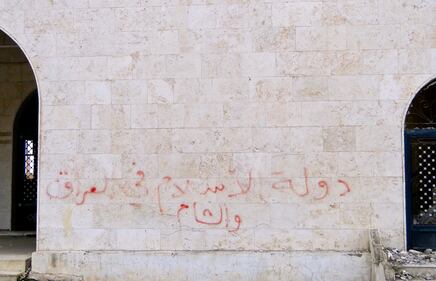 دولة الاسلام في العراق
والشام